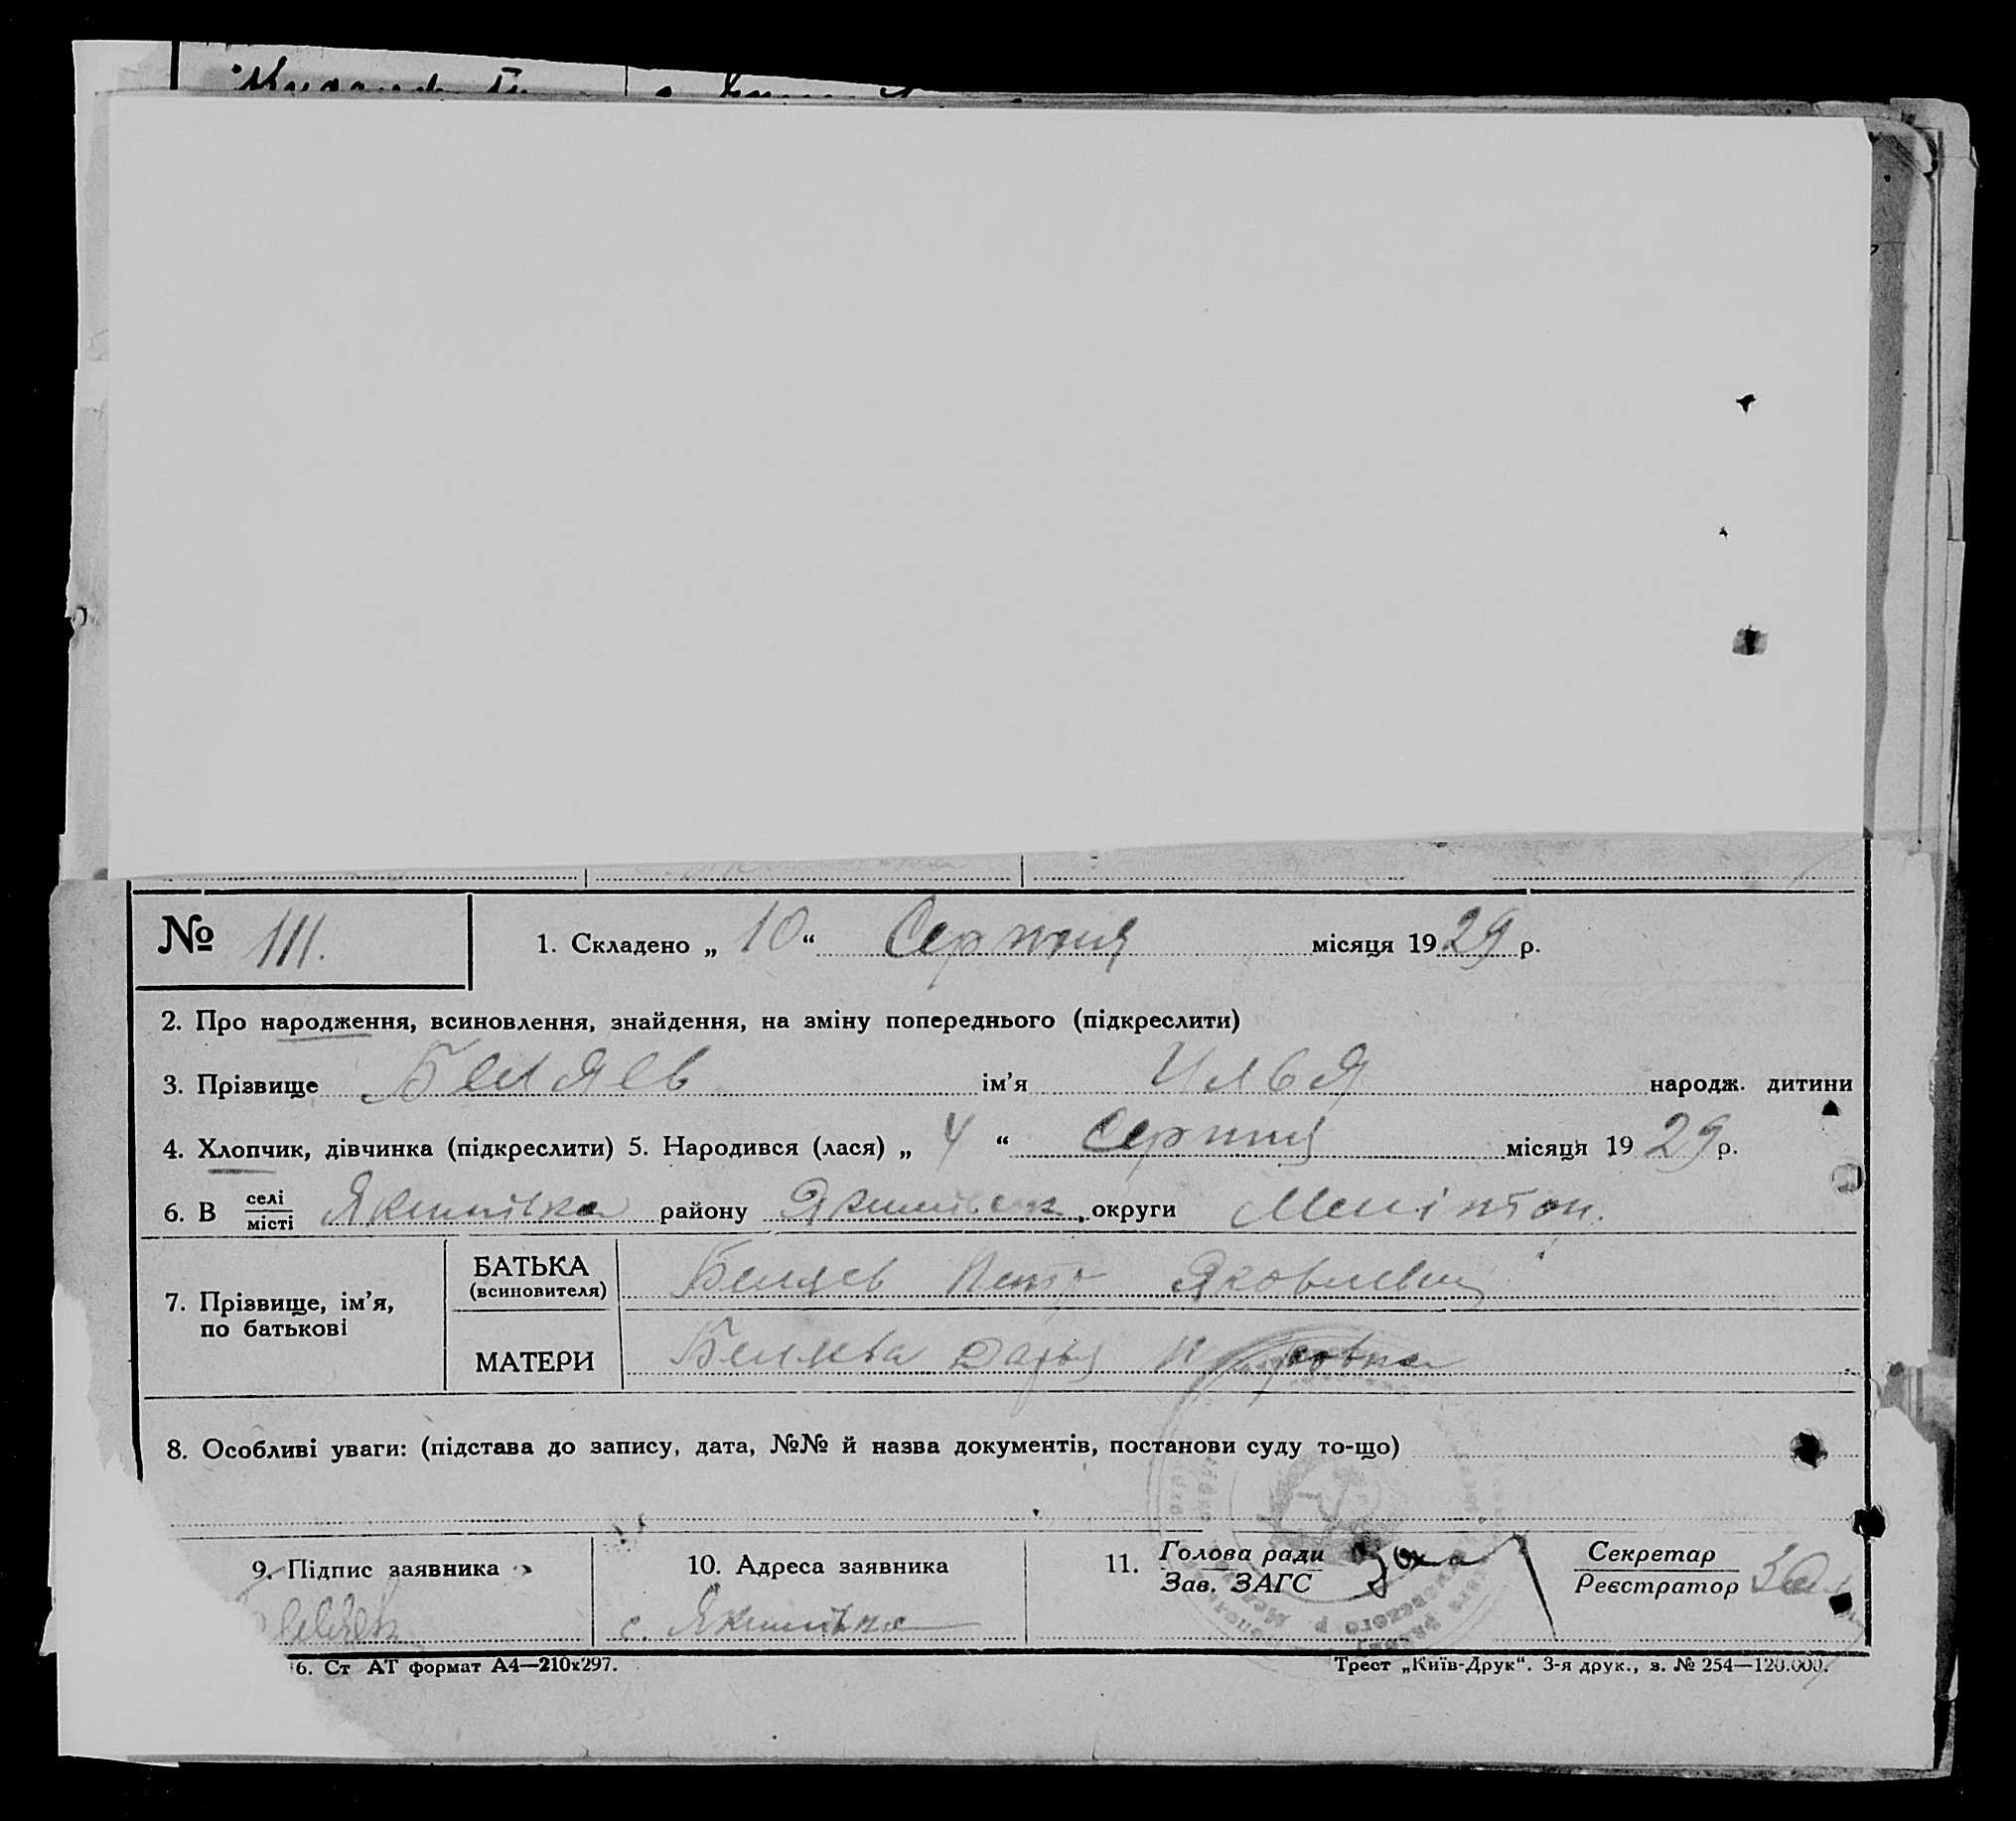 № 111. 1. Складено „ 10 “ Серпня місяця 1929 р.
2. Про народження, всиновлення, знайдення, на зміну попереднього (підкреслити)
3. Прізвище Беляев ім’я Илья народж. дитини
4. Хлопчик, дівчинка (підкреслити) 5. Народився (лася) „ 4 “ Серпня місяця 1929 р.
6. В селі / місті Якимівка району Якимівськ. округи Меліптон.
7. Прізвище, ім’я, по батькові
БАТЬКА (всиновителя) Беляев Петр Яковлевич
МАТЕРИ Беляева Дарья
8. Особливі уваги: (підстава до запису, дата, №№ й назва документів, постанови суду то-що)
9. Підпис заявника
10. Адреса заявника
с. Якимівка
11. Голова ради / Зав. ЗАГС
Секретар / Реєстратор
6. Ст АТ формат А4—210х297.
Трест „Київ-Друк“. 3-я друк., з. № 254—120.000.